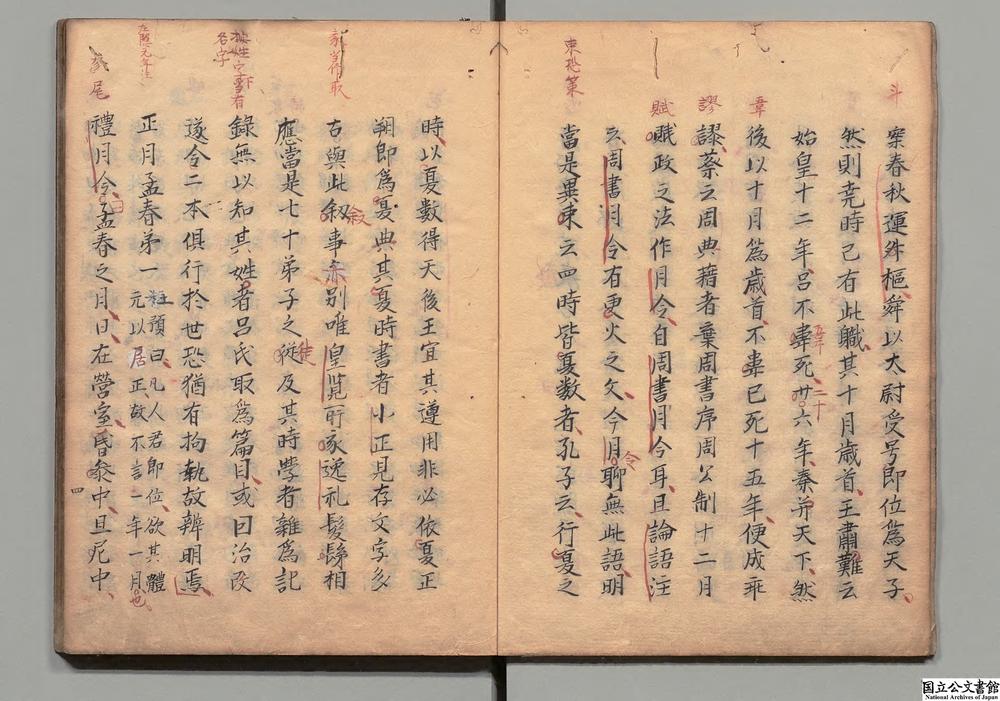 斗
案春秋運斗樞舜以太尉受号即位為天子
然則堯時已有此職其十月歳首王肅難云
始皇十二年吕不韋死廿六年秦并天下然
二十
韋
後以十月為歳首不韋已死十五年便成乖
謬
謬蔡云周典藉者葉周書序周公制十二月
賦
賦政之法作月令自周書月令耳且論語注
云周書月令有更火之文今月聊無此語明
令
束恐策
當是異束云四時皆夏数者孔子云行夏之
時以夏数得天後王宜其遵用非必依夏正
朔即為夏典其夏時書者小正見存文字多
古與此叙事亦別唯皇覧所家逸礼髣髴相
叙
家當作取
應當是七十弟子之徒及其時學者雜為記
徒
録無以知其姓者吕氏取為篇目或曰治改
遂令二本俱行於世恐猶有拘執故辨明焉
正月孟春第一 杜預曰凡人君即位欲其體元以居正故不言一年一月也
左隱元年注
尾
禮月令曰孟春之月日在營室昏參中旦尾中
四
国立公文書館
National Archives of Japan